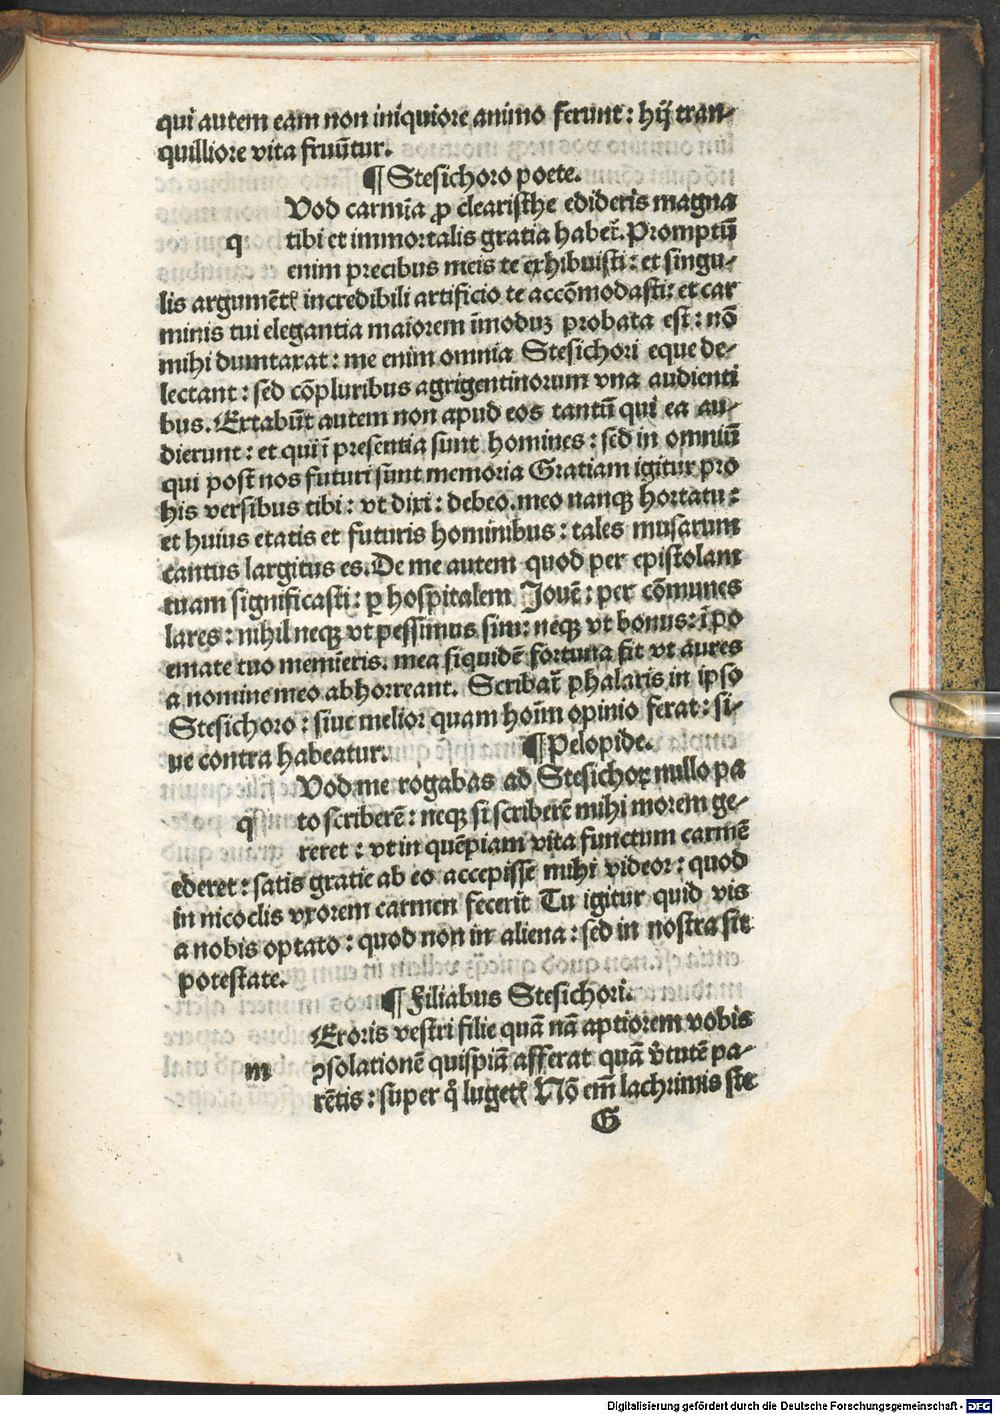 qui autem eam non iniquiore animo ferunt: hij tran-
quilliore vita fruūtur.
¶ Stesichoro poete.
Vod carmīa ꝓ clearisthe edideris magna
q tibi et immortalis gratia habeť. Promptū
enim precibus meis te exhibuisti: et singu-
lis argumētꝭ incredibili artificio te accōmodasti: et car
minis tui elegantia maiorem īmoduꝫ probata est: nō
mihi dumtaxat: me enim omnia Stesichori eque de-
lectant: sed cōpluribus agrigentinorum vna audienti
bus. Extabūt autem non apud eos tantū qui ea au-
dierunt: et qui ī presentia sunt homines: sed in omniū
qui post nos futuri sunt memoria Gratiam igitur pro
his versibus tibi: vt dixi: debeo. meo nanqꝫ hortatu:
et huius etatis et futuris hominibus: tales musarum
cantus largitus es. De me autem quod per epistolam
tuam significasti: ꝑ hospitalem Jouē: per cōmunes
lares: nihil neqꝫ vt pessimus sim: neqꝫ vt bonus: ī po
emate tuo memīeris. mea siquidē fortuna fit vt aures
a nomine meo abhorreant. Scribať phalaris in ipso
Stesichoro: siue melior quam hoīm opinio ferat: si-
ue contra habeatur. ¶ Pelopide.
Vod me rogabas ad Stesichoꝝ nullo pa
q to scriberē: neqꝫ si scriberē mihi morem ge-
reret: vt in quēpiam vita functum carmē
ederet: satis gratie ab eo accepisse mihi videor: quod
in nicoclis vxorem carmen fecerit Tu igitur quid vis
a nobis optato: quod non in aliena: sed in nostra sit
potestate.
¶ Filiabus Stesichori.
Eroris vestri filie quā nā aptiorem vobis
m ꝯsolationē quispiā afferat quā v̓tutē pa-
rētis: super q̊ lugetꝭ Nō em̄ lachrimis ste
G
Digitalisierung gefördert durch die Deutsche Forschungsgemeinschaft - DFG